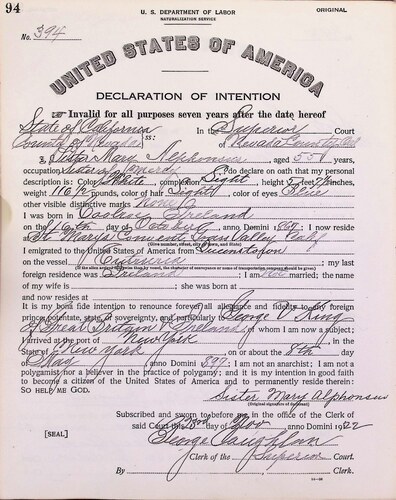 94
U. S. DEPARTMENT OF LABOR
NATURALIZATION SERVICE
ORIGINAL
No. 394
UNITED STATES OF AMERICA
DECLARATION OF INTENTION
Invalid for all purposes seven years after the date hereof
State of California
County of Nevada ss: In the Superior Court
of Nevada County, Cal
I, Sister Mary Alphonsus, aged 55 years,
occupation Sister of Mercy, do declare on oath that my personal
description is: Color White, complexion Light, height 5 feet inches,
weight pounds, color of hair Light, color of eyes Blue
other visible distinctive marks None
I was born in Ireland
on the 16th day of October, anno Domini 1867; I now reside
at St. Mary's Convent Grass Valley Calif
I emigrated to the United States of America from Queenstown
on the vessel; my last
foreign residence was Ireland; I am not married; the name
of my wife is; she was born at
and now resides at
It is my bona fide intention to renounce forever all allegiance and fidelity to any foreign
prince, potentate, state, or sovereignty, and particularly to George V King
of Great Britain & Ireland, of whom I am now a subject;
I arrived at the port of New York, in the
State of New York, on or about the 8th day
of May, anno Domini 1897; I am not an anarchist; I am not a
polygamist nor a believer in the practice of polygamy; and it is my intention in good faith
to become a citizen of the United States of America and to permanently reside therein:
SO HELP ME GOD.
Sister Mary Alphonsus
(Original signature of declarant)
Subscribed and sworn to before me in the office of the Clerk of
[SEAL] said Court this day of Nov, anno Domini 1922
George
Clerk of the Superior Court.
By, Clerk.